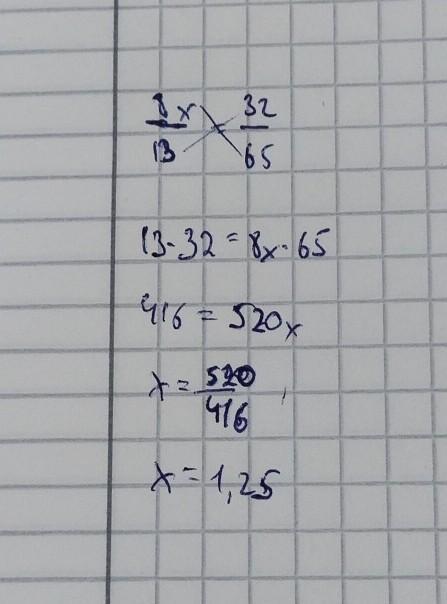 8x/13 = 32/65
13·32 = 8x·65
416 = 520x
x = 520/416
x = 1,25